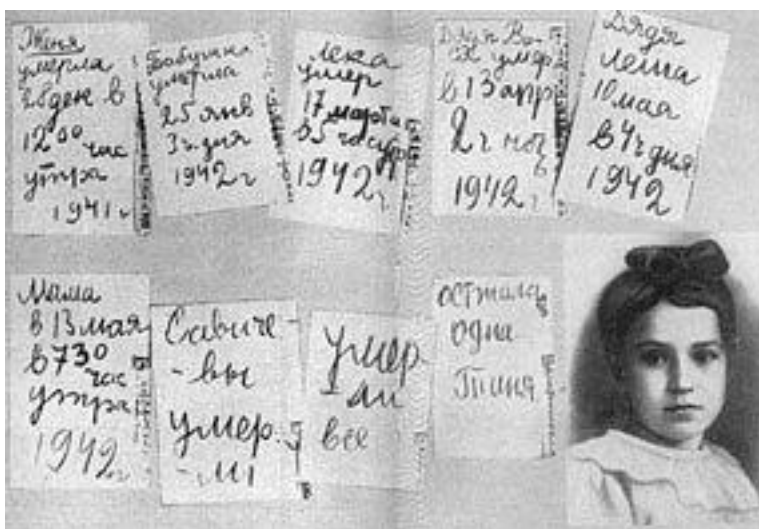 Женя
умерла
28 дек в
12 00 час
утра
1941 г
Бабушка
умерла
25 янв
3 ч. дня
1942 г
Лека
умер
17 марта
в 5 час утр
1942 г
Дядя Ва
ся умер
в 13 апр
2 ч ноч
1942 г
Дядя
Леша
10 мая
в 4 ч дня
1942
Мама
в 13 мая
в 730
час
утра
1942 г
Савиче
-вы
умер
-ли
умер
-ли
все
осталась
одна
Таня